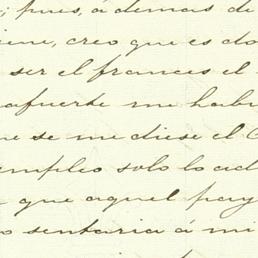 ; pues, ademas de
iene, creo que es do
ser el frances el
afuerte me habr
ue se me diese el C
empleo solo lo ad
que aquel pay
o sentaria á mi